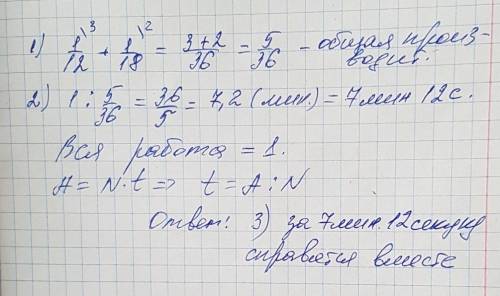 1) 1/12 \3 + 1/18 \2 = 3+2/36 = 5/36 – общая произ-
водит.
2) 1 : 5/36 = 36/5 = 7,2 (мин.) = 7мин 12с.
Вся работа = 1.
A = N·t => t = A : N
Ответ: 3) за 7мин. 12секунд
справятся вместе